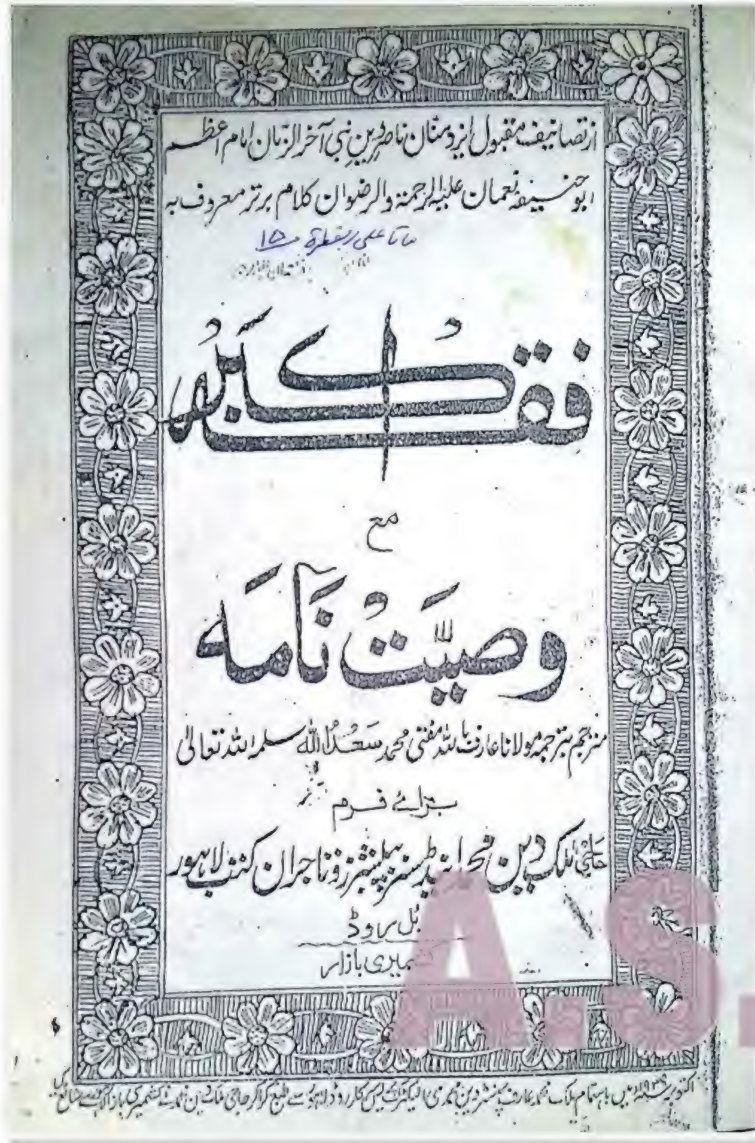 از تصانیف مقبول ایزد منان ناصر دین نبی آخر الزمان امام اعظم
ابو حنیفہ نعمان علیہ الرحمۃ والرضوان کلام برتر معروف بہ
فقہ اکبر
مع
وصیت نامہ
مترجم بترجمہ مولانا عارف باللہ مفتی محمد سعد اللہ سلمہ اللہ تعالیٰ
برائے فرم
حاجی ملک دین محمد اینڈ سنز پبلشرز و تاجران کتب لاہور
بل روڈ
کشمیری بازار
اکتوبر میں باہتمام ملک محمد عارف پرنٹر دین محمدی الیکٹرک پریس سرکلر روڈ لاہور سے طبع کرا کر حاجی ملک دین محمد نے کشمیری بازار لاہور سے شائع کیا
A.S.